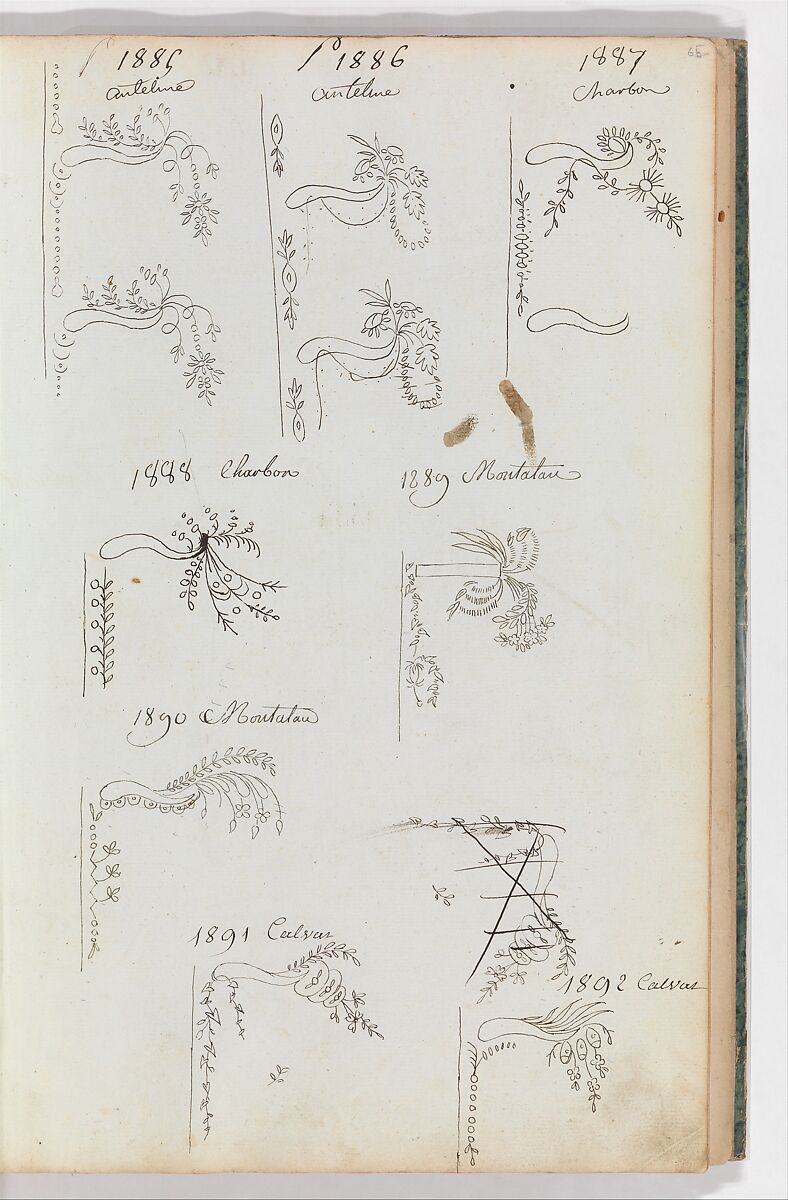 65
1885
anteline
1886
anteline
1887
Charbon
1888 Charbon
1889 Montalan
1890 Montalan
1891 Calvas
1892 Calvas